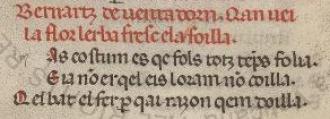 Bernartz de uentadorn. Qan uei
la flor lerba fresc ela foilla.
As costum es qe fols totz tẽps folia.
E ia nõ er qel eis loram nõ coilla.
Qel bat el fer ꝑ qai raion qem doilla.